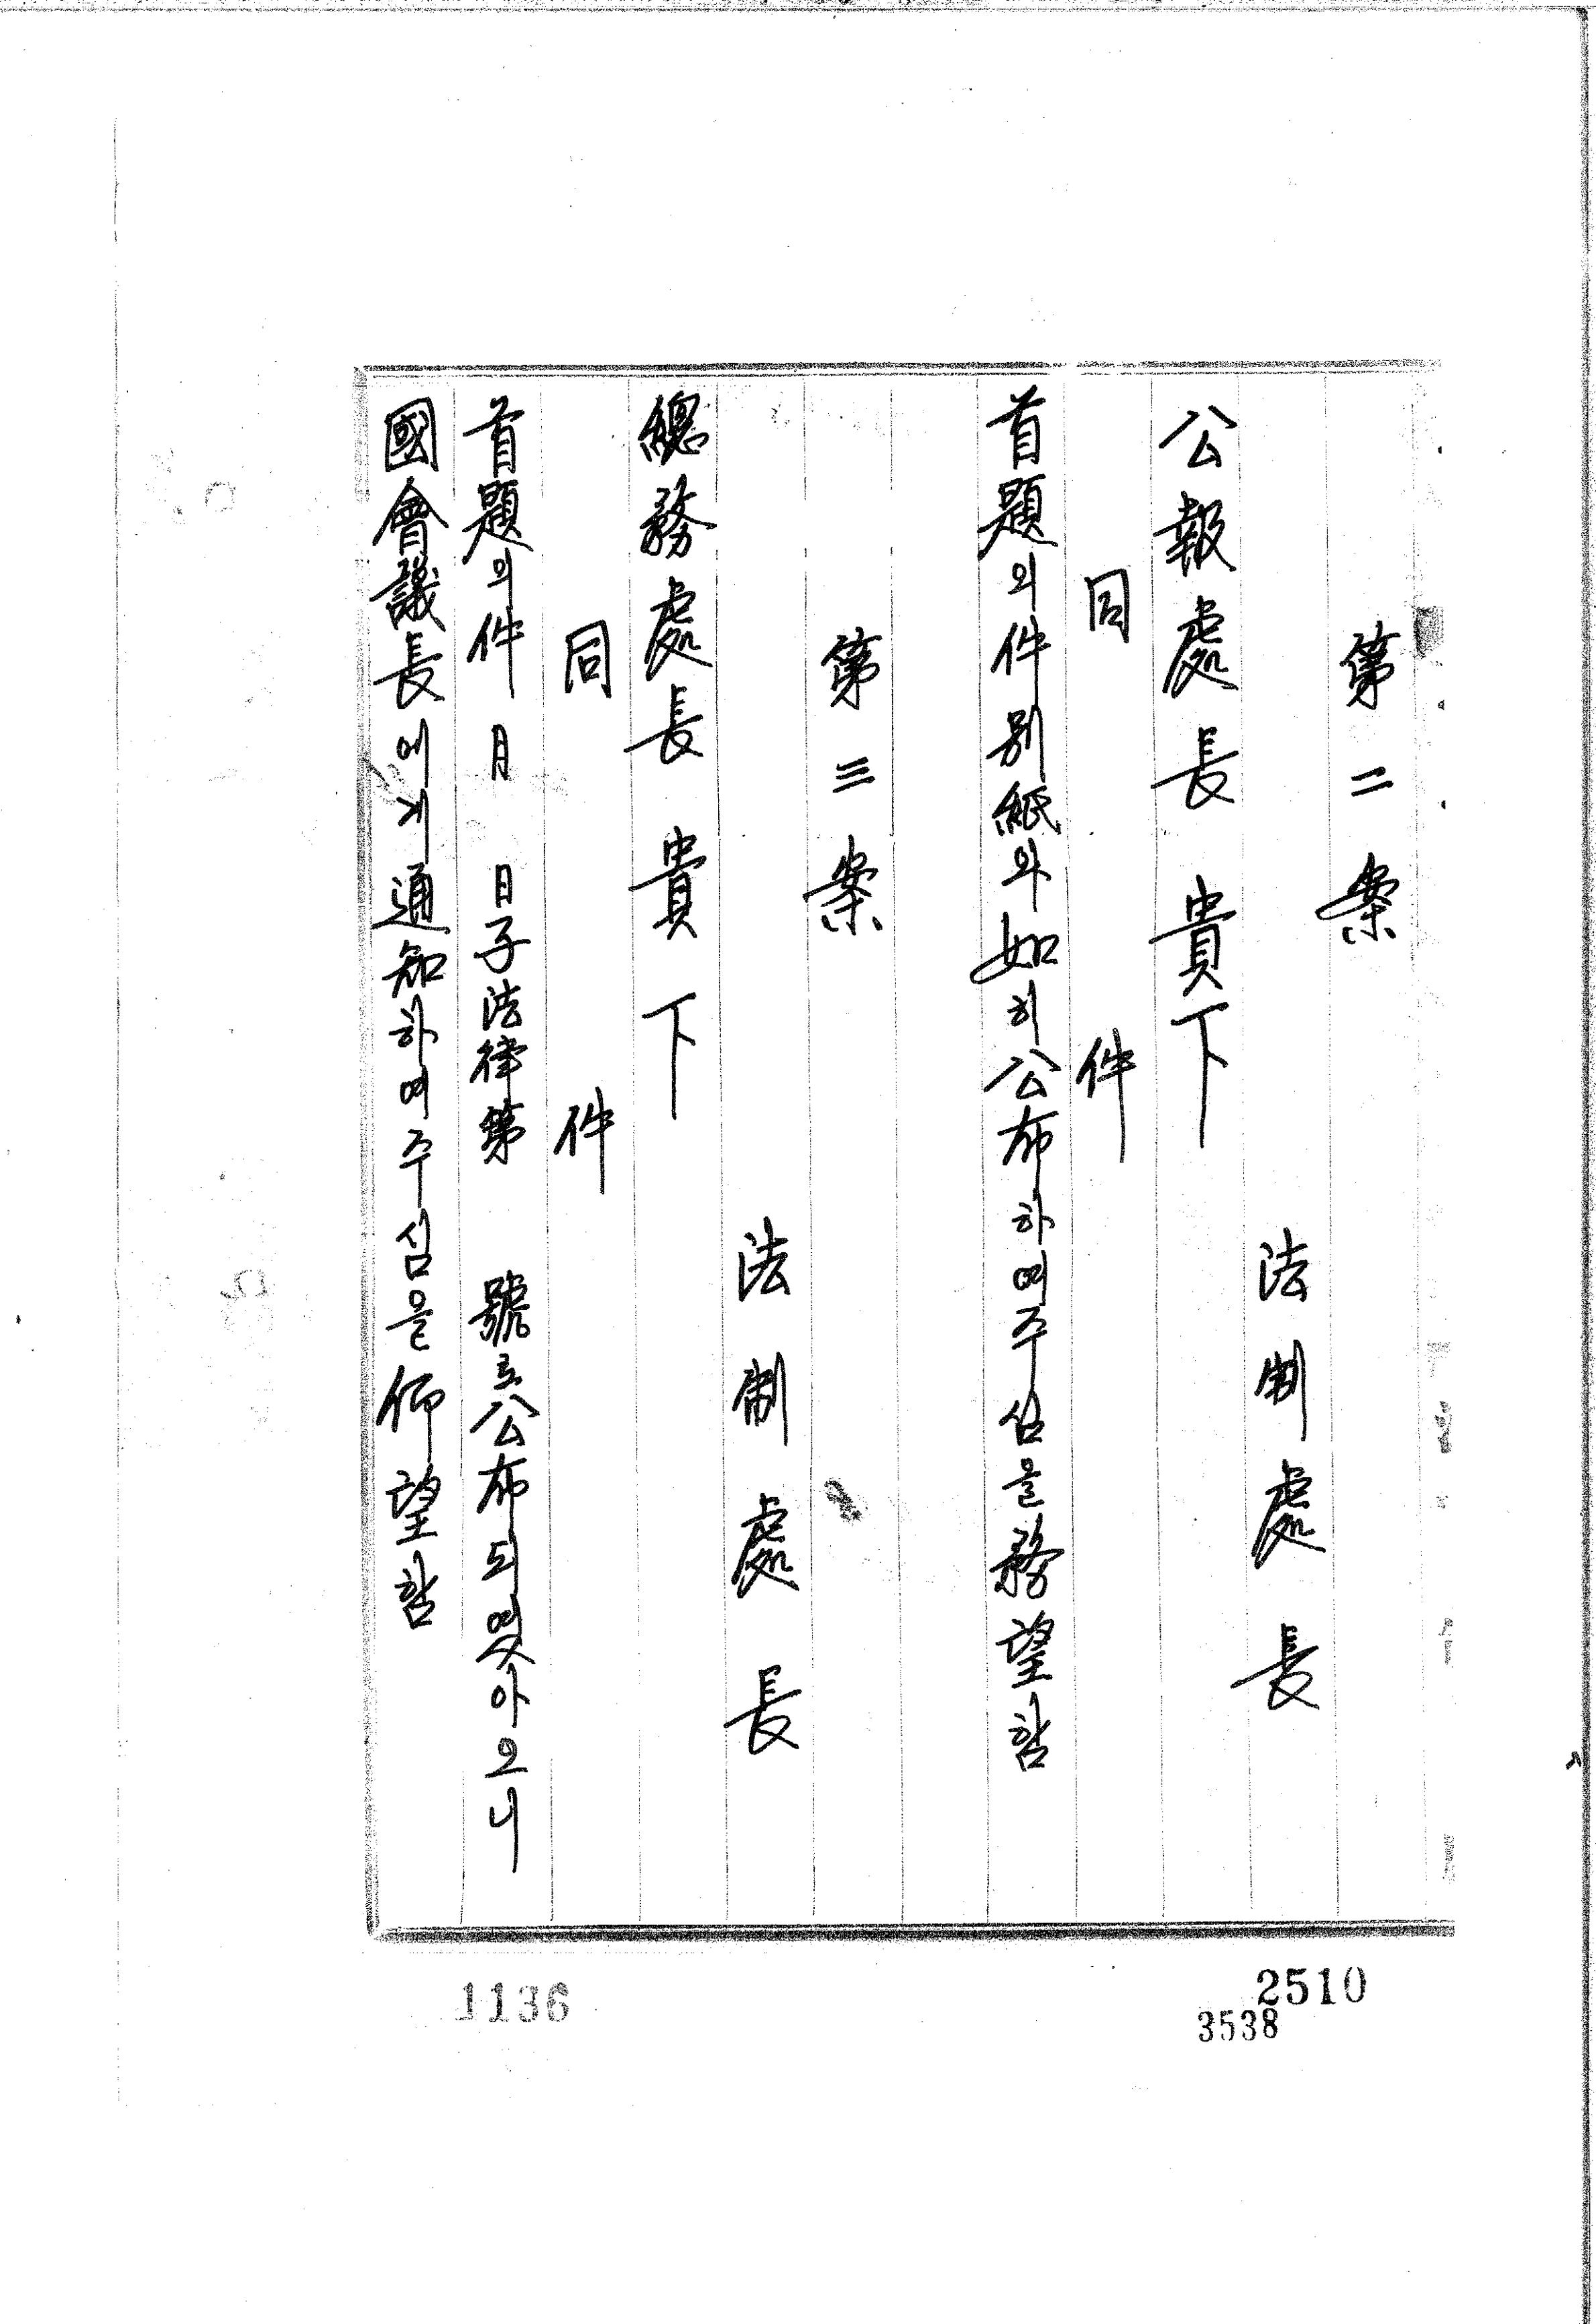 第二案
法制處長
公報處長 貴下
同 件
首題의件別紙와如히公布하여주심을務望함
第三案
法制處長
總務處長 貴下
同 件
首題의件 月 日字法律第 號로公布되였아오니
國會議長에게通知하여주심을仰望함
1136
2510
3538